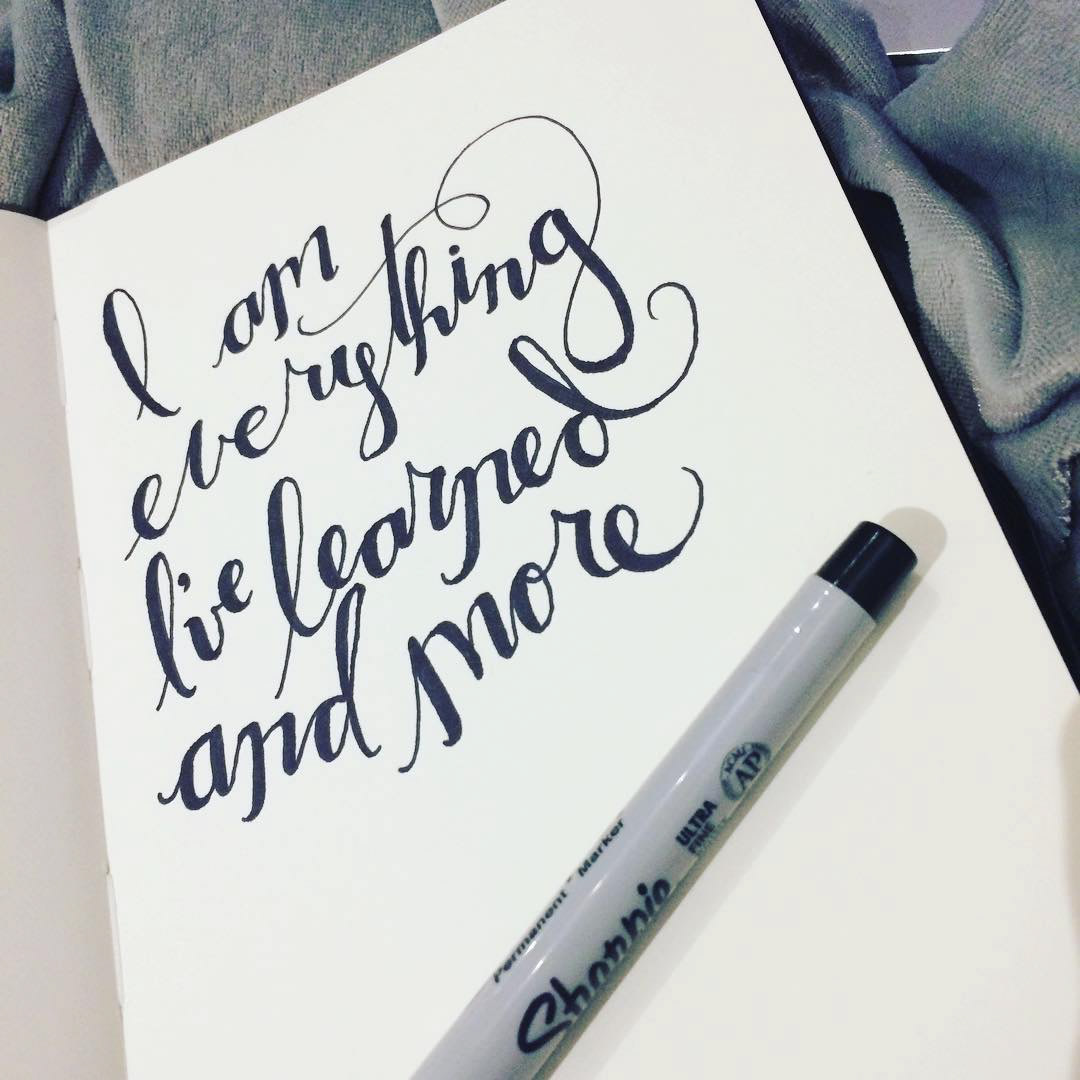 I am
everything
I've learned
and more
Sharpie
Permanent Marker
ULTRA
FINE
ACMI
AP